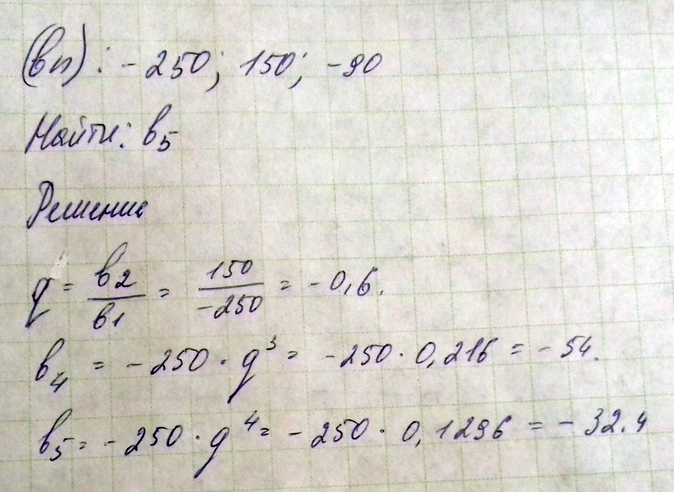 (bn): -250; 150; -90
Найти: b5
Решение
q = b2/b1 = 150/-250 = -0,6.
b4 = -250 · q³ = -250 · 0,216 = -54.
b5 = -250 · q⁴ = -250 · 0,1296 = -32.4